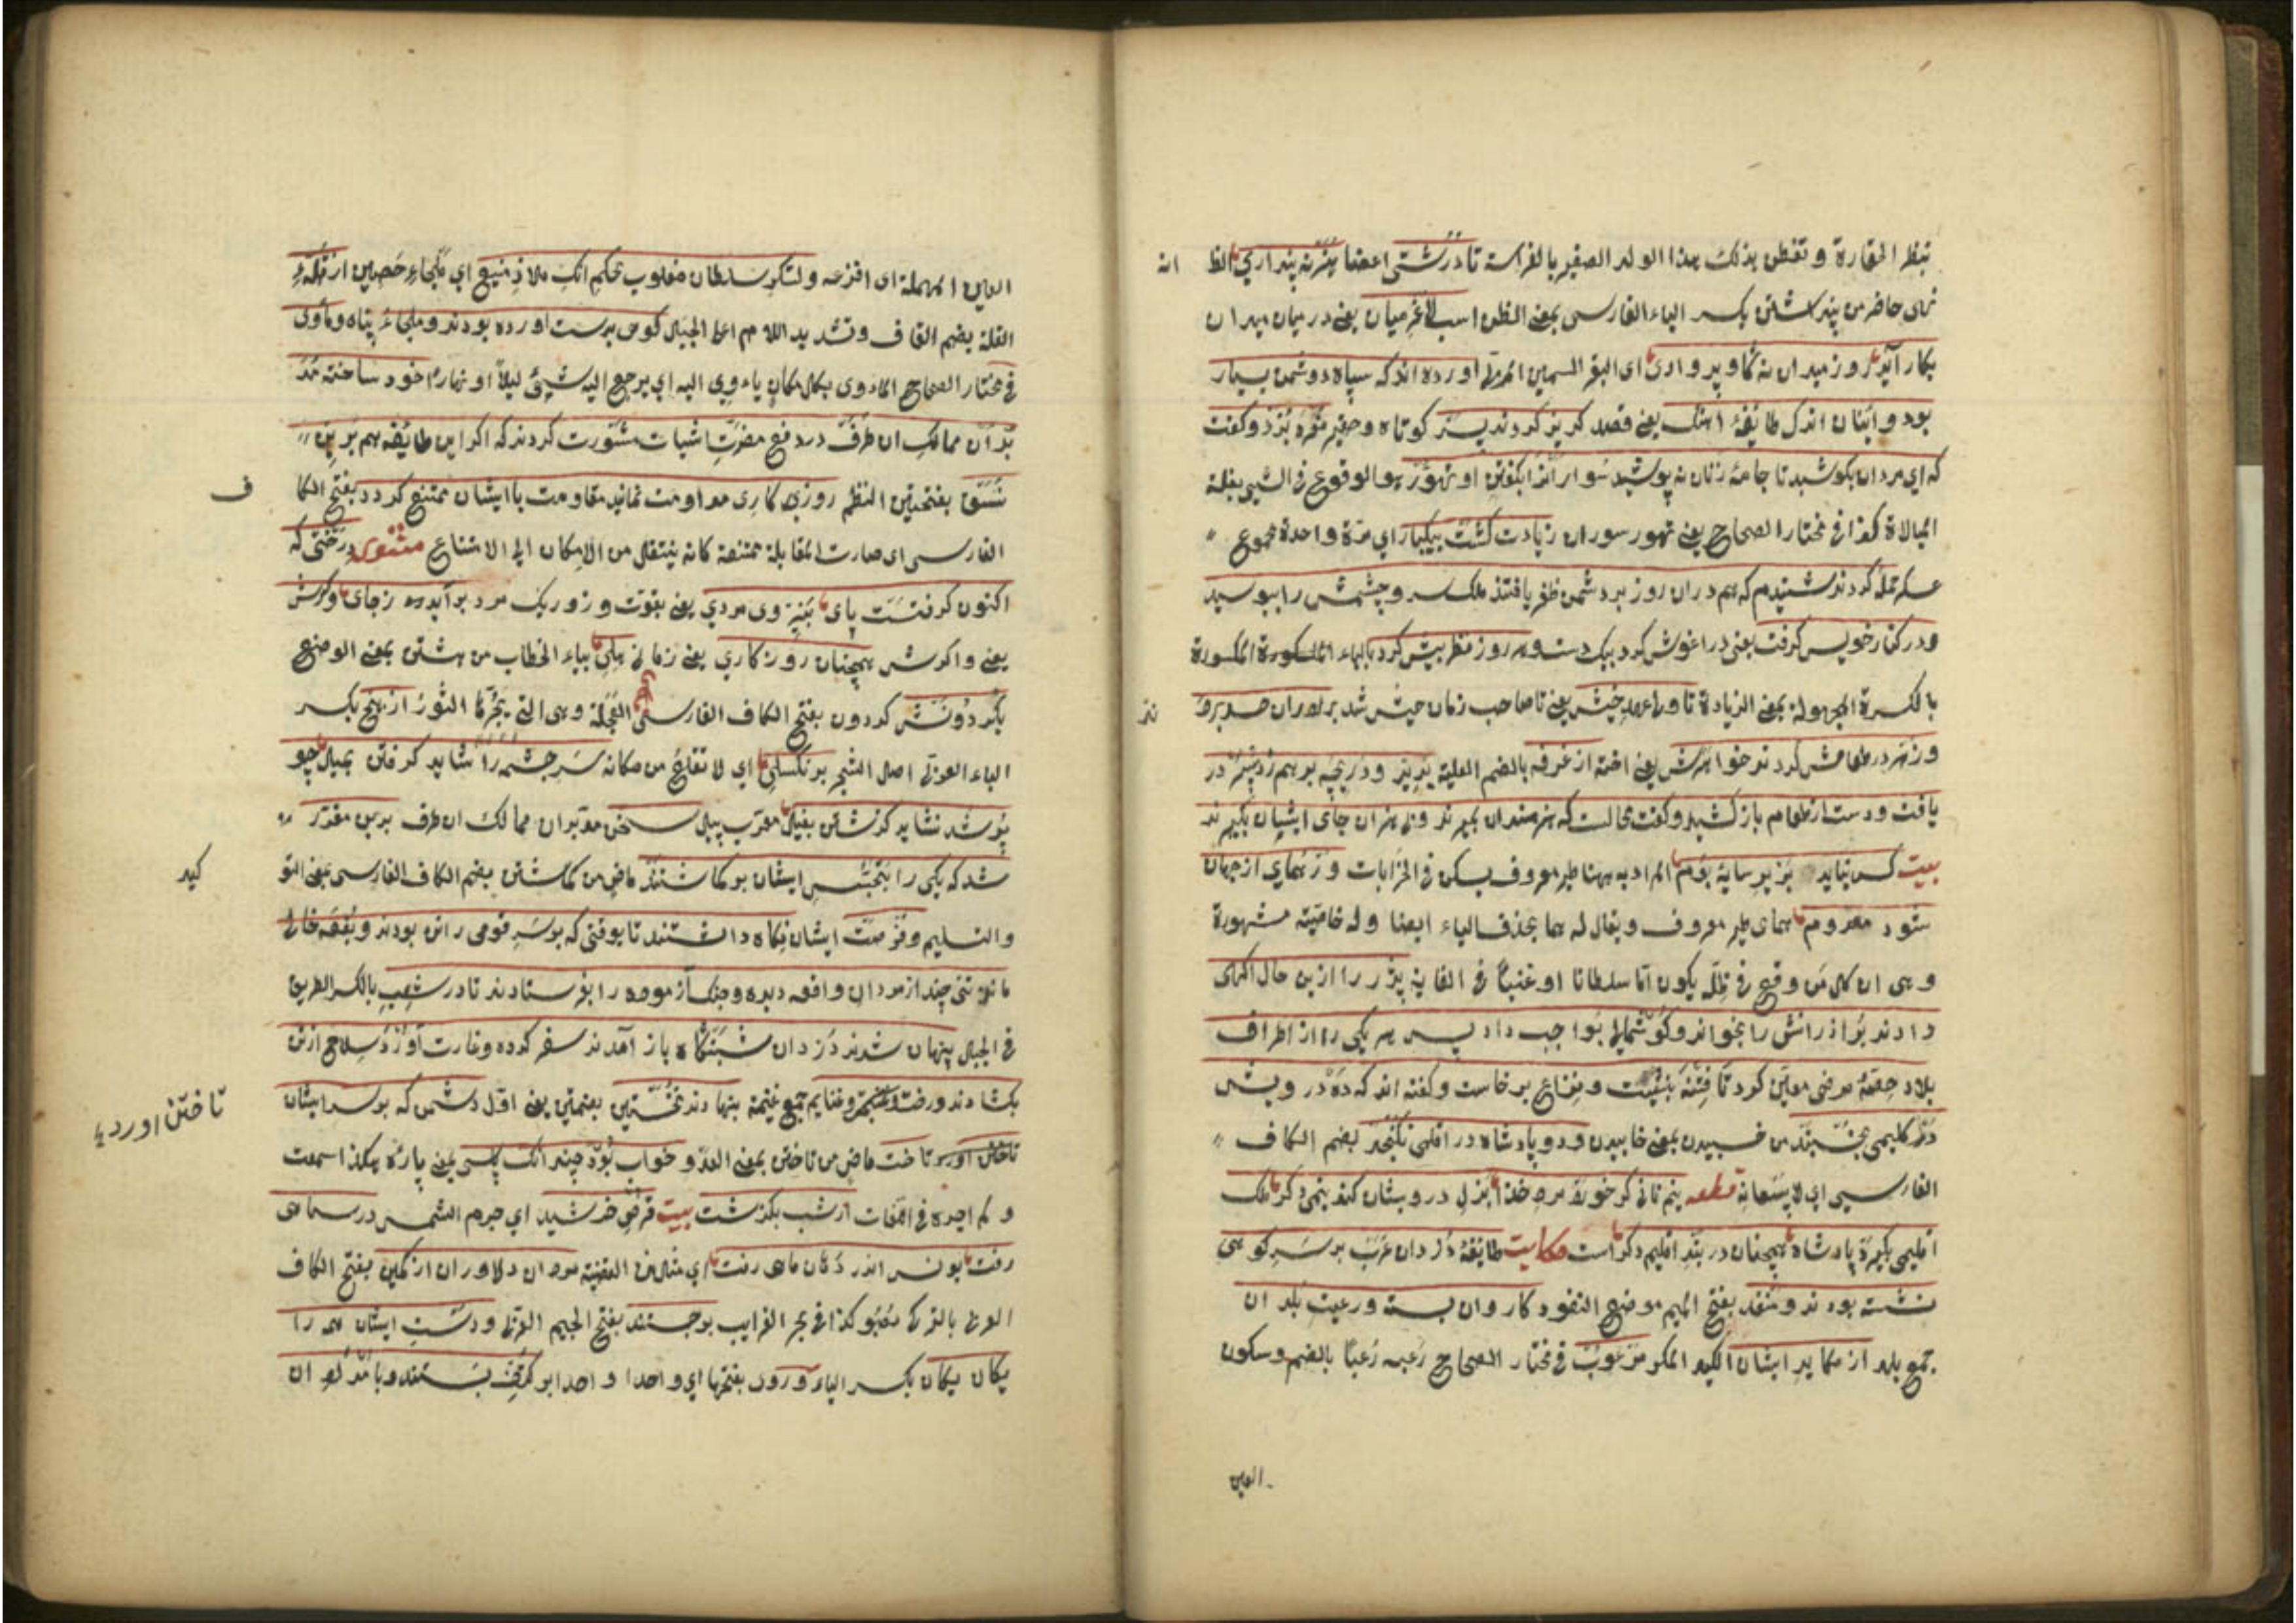 بنظر الحقارة و تفطن بذلك هذا الولد الصغير بالفراسة تا درشتى اعضا هنر نه پندارى الظ
نهى حاضر من پنداشتن بكسر الباء الفارسى بمعنى الظن اسب لاغر ميان يعنى درميان ميدان
بكار آيد روز ميدان نه گاو پروارى اى البقر السمين آورده اندكه سپاه دوشمن بسيار
بود و اينان اندك طائفهٔ آهنك يعنى قصد كريز كردند پسر كوتاه و حقير نعره بزد و كفت
كه اى مردان بكوشيد تا جامهٔ زنان نپوشيد سوارانرا بكفتن او تهوّر هو الوقوع فى الشئ بقلة
المبالاة كذا فى مختار الصحاح يعنى تهور سوران زيادت كشت بيكبار اى مرة واحدة مجموع
حمله كردند شنيدم كه هم دران روز بر دشمن ظفر يافتند ملك سر و چشمش را ببوسيد
ودر كنار خويش كرفت يعنى در اغوش كرد وهر روز نظر بيش كرد بالباء المكسورة
بالكسرة المجهولة بمعنى الزيادة تا ولى عهد خويش يعنى تا صاحب زمان خويش شد برادران حسد بردند
و زهر در طعامش كردند خواهرش يعنى اخته از غرفه بالضم العلية بديد و دريچه برهم زد پسر در
يافت و دست از طعام باز كشيد و كفت محالست كه هنرمندان بميرند و بى هنران جاى ايشان بكيرند
بيت كس نيايد بزير سايهٔ بوم المراد به ههنا طير معروف يسكن فى الخرابات ور هماى از جهان
شود معدوم هماى طير معروف و يقال له هما بحذف الياء ايضا وله خاصية مشهورة
و هى ان كل من وقع فى ظله يكون اما سلطانا او غنيا فى الغاية پدر را ازين حال اكهى
دادند برادرانش را بخواند و كوشمالى بواجب داد پس هر يكى را از اطراف
بلاد حصهٔ مرضى معين كرد تا فتنه بنشست و نزاع برخاست و كفته اندكه ده درويش
در كليمى بخسبند من خسبيدن بمعنى خابيدن و دو پادشاه در اقليمى نكنجد بضم الكاف
الفارسى اى لا يسعانه قطعه نيم نانى كر خورد مرد خدا بذل درويشان كند نيمى دكر ملك
اقليمى بكيرد پادشاه همچنان در بند اقليم دكر است حكايت طائفهٔ دزدان عرب بر سر كوهى
نشسته بودند و منفذ بفتح الميم موضع النفوذ كاروان بسته و رعيت بلدان
جمع بلد از مكايد ايشان الكيد المكر مرعوب فى مختار الصحاح رعبه رعبا بالضم وسكون
العين
العين المهملة اى افزعه و لشكر سلطان مغلوب بحكم انك ملاذ منيع اى ملجاء حصين از قلهٔ
القلة بضم القاف وتشديد اللام اعلى الجبل كوهى بدست اورده بودند و ملجاء پناه و ماوى
فى مختار الصحاح الماوى بكل مكان ياوى اليه اى يرجع اليه شئ ليلا او نهارا خود ساخته مد
بران ممالك ان طرف در دفع مضرت ايشان مشورت كردند كه اكر اين طائفه هم برين
نسق بفتحتين النظم روزى كارى مداومت نمايند مقاومت با ايشان ممتنع كردد بفتح الكا ف
الفارسى اى صارت المقابلة ممتنعة كانه ينتقل من الامكان الى الامتناع مثنوى درختى كه
اكنون كرفتست پاى بنيروى مردى يعنى بقوت و زور يك مرد برآيد زجاى وكرش
يعنى واكرش همچنان روزكارى يعنى زمانى هلى بياء الخطاب من هشتن بمعنى الوضع
بكردونش كردون بفتح الكاف الفارسى العجلة وهى التى يجرها الثور از بيخ بكسر
الباء العربى اصل الشجر برنكسلى اى لا تقلع من مكانه سر چشمه را شايد كرفتن بميل چو
پر شد نشايد كذشتن بفيل معرب پيل سخن مدبران ممالك ان طرف برين مقرر
شد كه يكى را بتجسس ايشان بركماشتند ماض من كماشتن بضم الكاف الفارسى بمعنى التو كيد
والتسليم و فرصت ايشان نكاه داشتند تا بوقتى كه بر سر قومى رانده بودند و بقعه خالى
مانده تنى چند از مردان واقعه ديده و جنك آزموده را بفرستادند تا در شعب بالكسر الطريق
فى الجبل پنهان شدند دزدان شبنكاه باز آمدند سفر كرده و غارت آورده سلاح از تن
بكشادند و رخت و غنايم جمع غنيمة بنهادند نخستين بضمتين يعنى اول دشمن كه بر سر ايشان
تاختن آورد تاخت ماض من تاختن بمعنى العدو خواب بود چندانك پاسى بمعنى پاره هكذا سمعت
و لم اجده فى اللغات از شب بكذشت بيت قرص خورشيد اى جرم الشمس در سياهى
رفت يونس اندر دهان ماهى رفت مردان دلاوران از كمين بفتح الكاف
العربى بالتركى كذا فى بحر الغرايب برجستند بفتح الجيم العربى و دست ايشان همه را
يكان يكان بكسر الياء بفتحها اى واحدا واحدا بر كتف بستند و بامداد ان
تاختن اورد